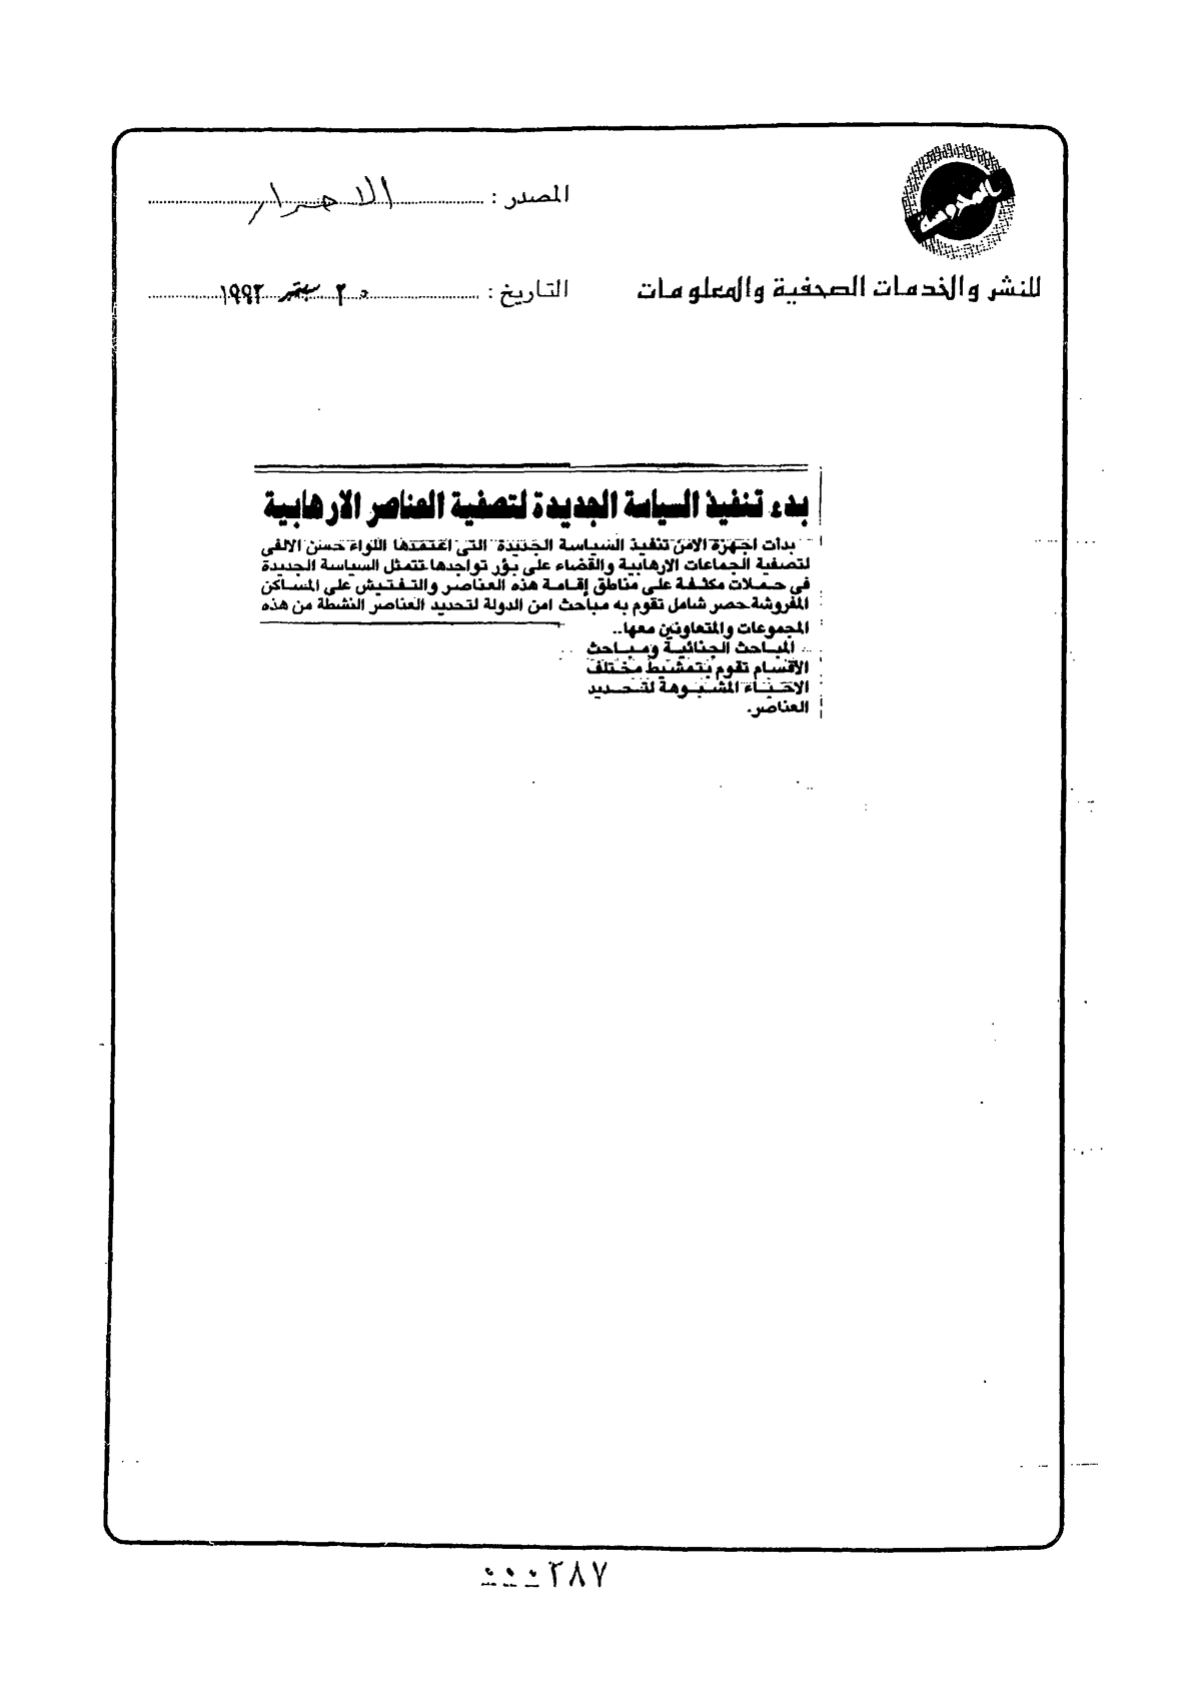 المحروسة
المصدر : الاحرار
للنشر والخدمات الصحفية والمعلومات
التاريخ : ٢٠ سبتمبر ١٩٩٣
بدء تنفيذ السياسة الجديدة لتصفية العناصر الارهابية
بدأت اجهزة الامن تنفيذ السياسة الجديدة التى اعتمدها اللواء حسن الالفى
لتصفية الجماعات الارهابية والقضاء على بؤر تواجدها.تتمثل السياسة الجديدة
فى حملات مكثفة على مناطق إقامة هذه العناصر والتفتيش على المساكن
المفروشة.حصر شامل تقوم به مباحث امن الدولة لتحديد العناصر النشطة من هذه
المجموعات والمتعاونين معها..
المباحث الجنائية ومباحث
الأقسام تقوم بتمشيط مختلف
الاحياء المشبوهة لتحديد
العناصر.